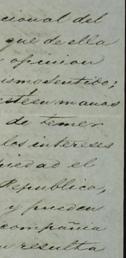 cional del
que de ella
opinion
ismo sentido;
esté en manos
de temer
los intereses
piedad el
Republica,
y pueden
compañia
resulta